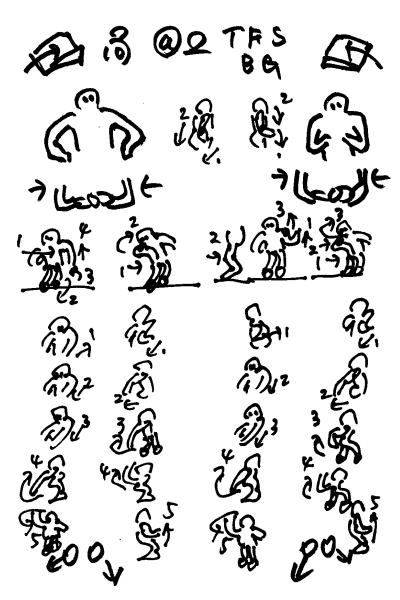 10 @ TFS
BG
2 2
1 1
3
1 4 2 2 1 3
2
3 1 1
2
1 1 1 1
2 2 2 2
3 3 3 3
4 4 4 4
5 5 5